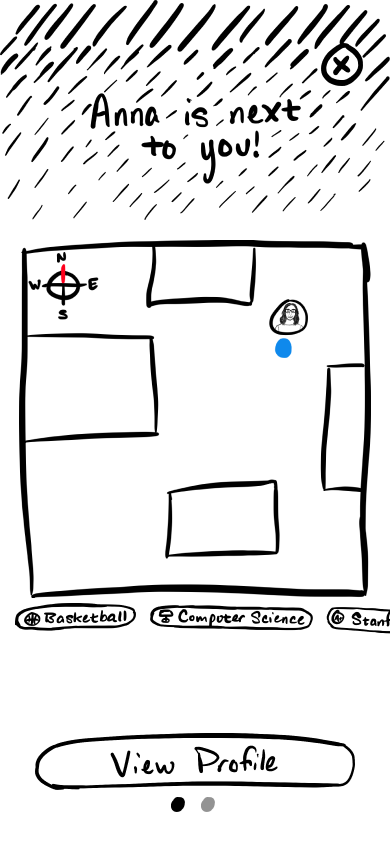 Anna is next
to you!
N
W E
S
Basketball Computer Science Stanf
View Profile